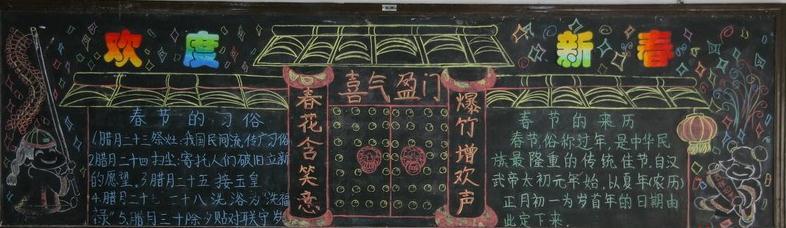 欢度
新春
喜气盈门
春花含笑意
爆竹增欢声
春节的习俗
1.腊月二十三祭灶:我国民间流传广习俗
2腊月二十四扫尘:寄托人们破旧立新
的愿望。3腊月二十五接玉皇
4.腊月二十七二十八洗浴为"洗福
禄"5.腊月三十除夕贴对联守岁
春节的来历
春节,俗称过年,是中华民
族最隆重的传统佳节,自汉
武帝太初元年始,以夏年(农历)
正月初一为岁首年的日期由
此定下来.